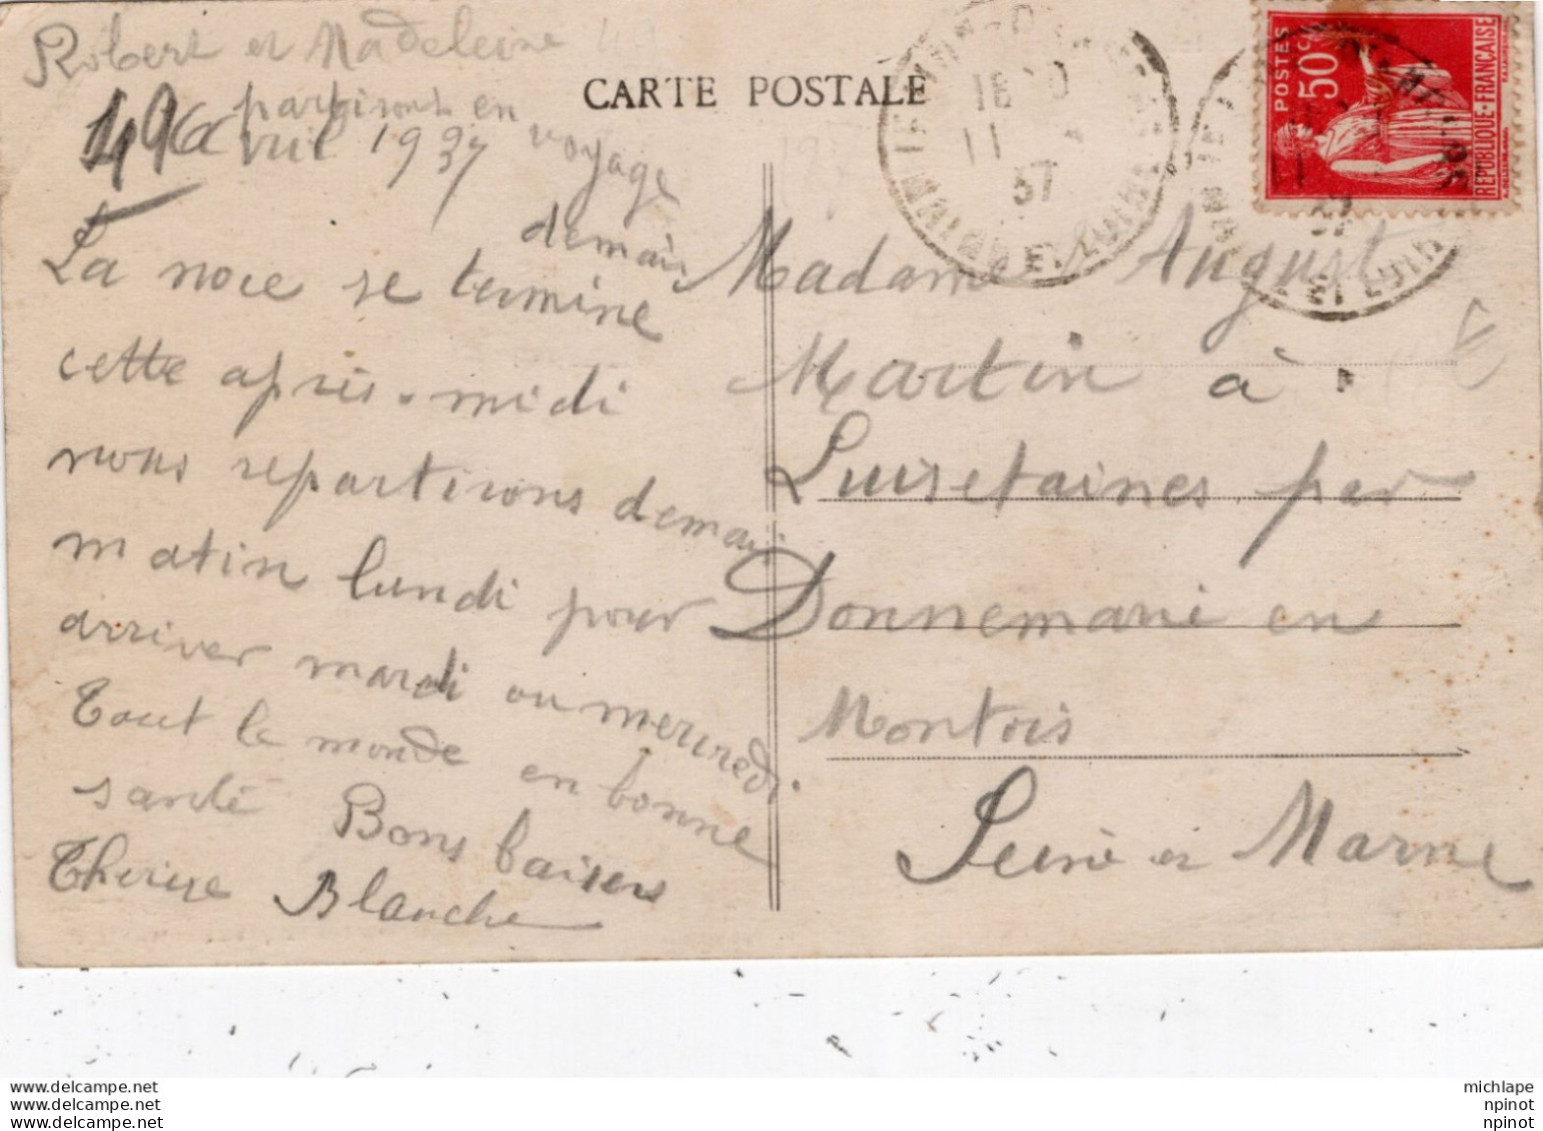 Robert et Madeleine
partiront en
voyage
demain
avril 1937
La noce se termine
cette après-midi
nous repartirons demain
matin lundi pour
arriver mardi ou mercredi.
Tout le monde en bonne
santé Bons baisers
Blanche
CARTE POSTALE
18
11
37
POSTES
50 c
REPUBLIQUE-FRANÇAISE
Madame August
Martin à
Luisetaines par
Donnemarie en
Montois
Seine et Marne
www.delcampe.net
www.delcampe.net
www.delcampe.net
michlape
npinot
npinot